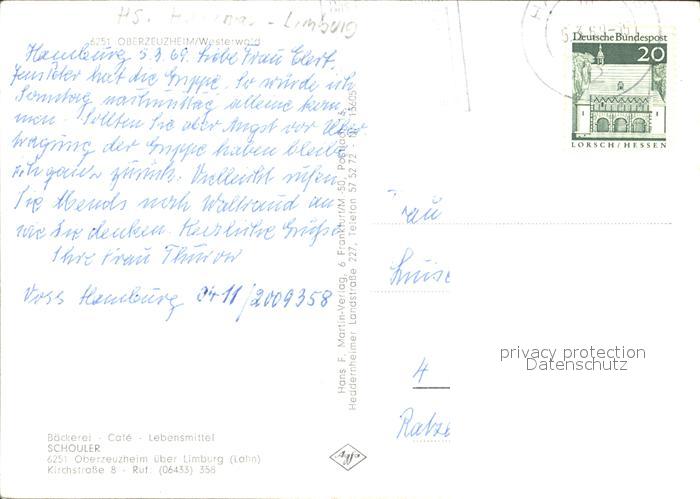 HS. - Limburg
6251 OBERZEUZHEIM/Westerwald
Hamburg 5.3.69. Liebe Frau Elert,
hat die Grippe. So würde ich
Sonntag nachmittag alleine kom
men. Sollten Sie aber Angst vor Über
tragung der Grippe haben bleibe
ich ganz zurück. Vielleicht rufen
Sie Abends noch Waltraud an
wie Sie denken. Herzliche Grüße
Ihre Frau Thurow
Voss Hamburg 0411/2009358
Bäckerei - Café - Lebensmittel
SCHOULER
6251 Oberzeuzheim über Limburg (Lahn)
Kirchstraße 8 - Ruf. (06433) 358
Hans F. Martin-Verlag, 6 Frankfurt/M-50, Postfach
Heddernheimer Landstraße 227, Telefon 57 52 72
Deutsche Bundespost
20
LORSCH/HESSEN
Frau
Luise
4
Ratze
privacy protection
Datenschutz